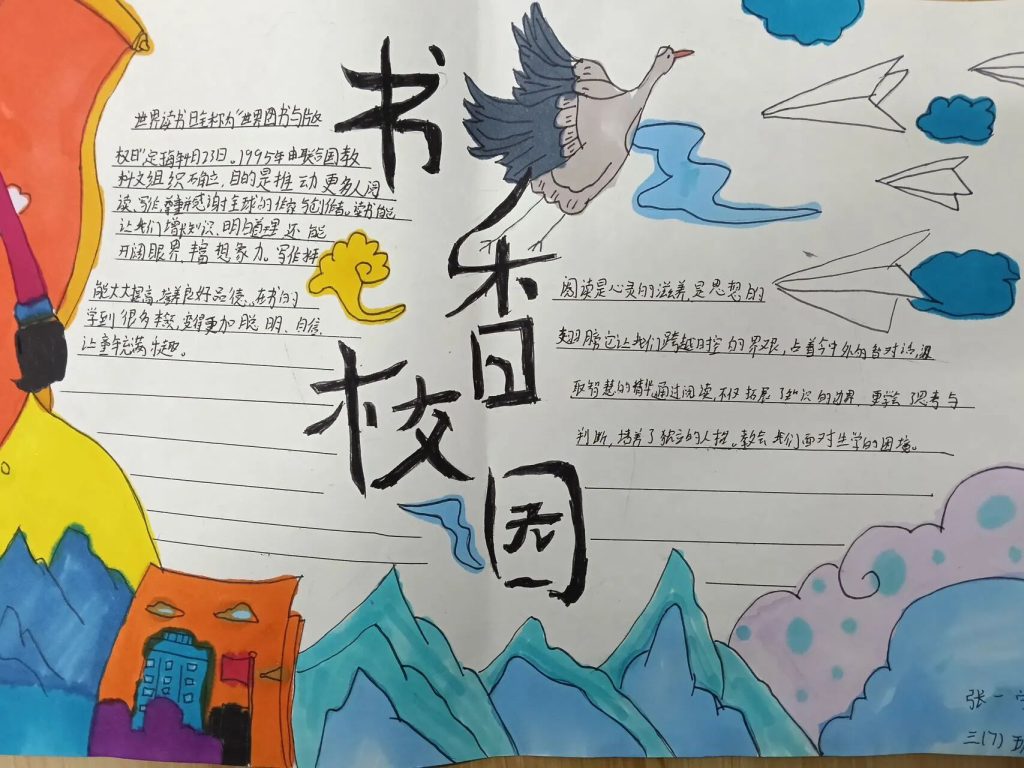 书香校园
世界读书日全称为“世界图书与版
权日”定每年4月23日。1995年由联合国教
科文组织确立,目的是推动更多人阅
读、写作,尊重和感谢全球的作家与创作者。读书能
让我们增长知识、明白道理还能
开阔眼界,丰富想象力。写作
能大大提高,培养良好品德、在书中
学到很多,变得更加聪明、自信
让童年充满
阅读是心灵的滋养,是思想的
翅膀它让我们跨越时空的界限,与古今中外的对话,汲
取智慧的精华,通过阅读,不仅拓展了知识的边界,更学会了思考与
判断,培养了独立的人格。教会我们面对生的困境。
张一
三(7)班